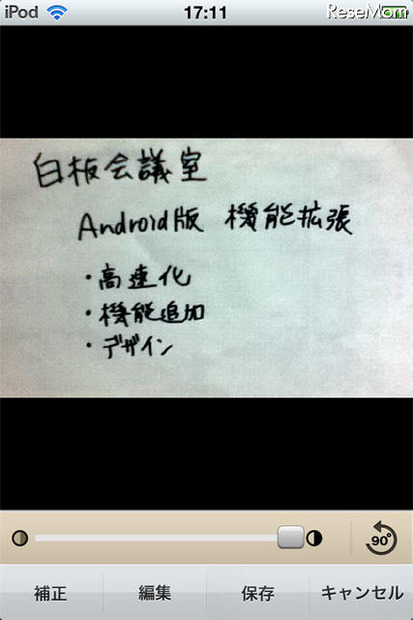 iPod 17:11 ReseMom
白板会議室
Android版 機能拡張
・高速化
・機能追加
・デザイン
90°
補正 編集 保存 キャンセル